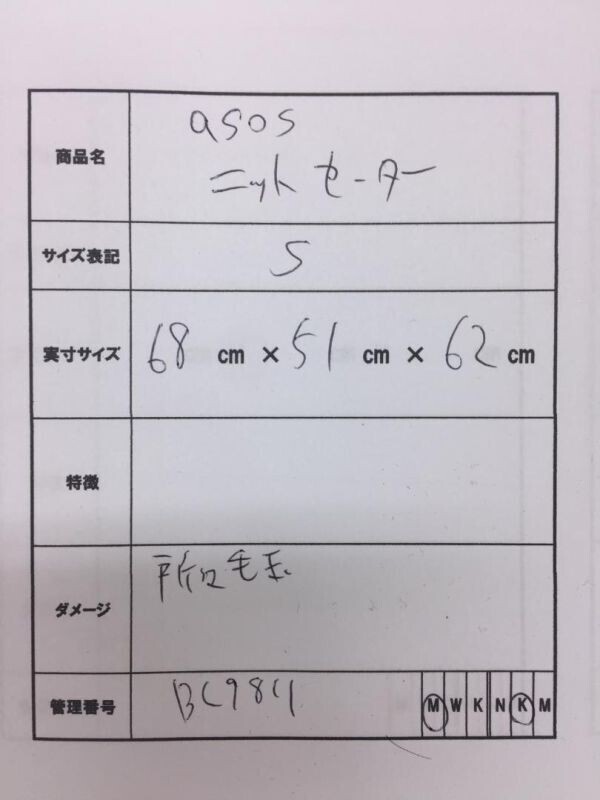 商品名
asos
ニット セーター
サイズ表記
S
実寸サイズ
68 cm × 51 cm × 62 cm
特徴
ダメージ
所々毛玉
管理番号
M W K N K M